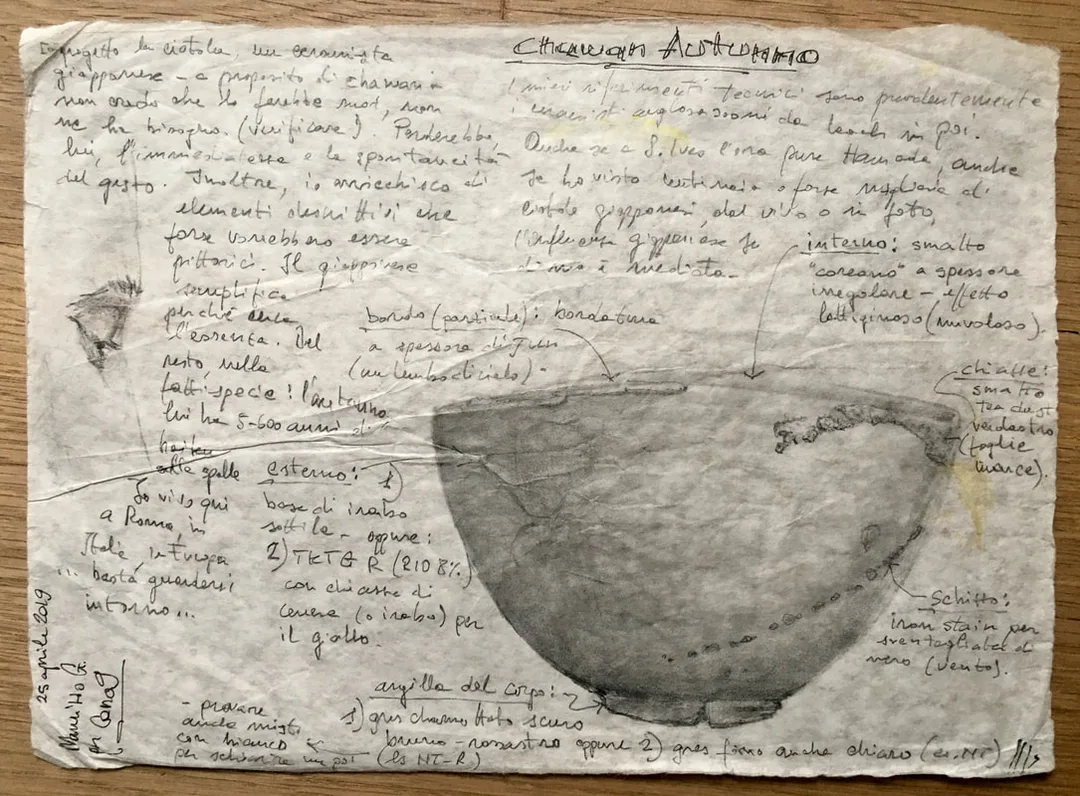 CHAWAN AUTUNNO
Io progetto la ciotola, un ceramista
giapponese - a proposito di chawan -
non credo che lo farebbe mai, non
ne ha bisogno. (verificare!). Perderebbe,
lui, l'immediatezza e la spontaneità
del gesto. Inoltre, io arricchisco di
elementi descrittivi che
forse vorrebbero essere
pittorici. Il giapponese
semplifica
perché cerca
l'essenza. Del
resto, nella
fattispecie: l'autunno
lui ha 5-600 anni di
haiku
alle spalle
Io vivo qui
a Roma, in
Italia, in Europa
... basta guardarsi
intorno...
I miei riferimenti tecnici sono prevalentemente
i anglosassoni da Leach in poi.
Anche se a S. Ives c'era pure Hamada, anche
se ho visto centinaia o forse migliaia di
ciotole giapponesi dal vivo o in foto,
l'influenza giapponese su
di me è mediata.
interno: smalto
"coreano" a spessore
irregolare - effetto
lattiginoso (nuvoloso).
bordo (parziale): bordatura
a spessore di
(un lembo di cielo) -
chiazze:
smalto
tea dust
verdastro
(foglie
marce).
esterno: 1)
base di inabo
sottile - oppure:
2) TKTG R (210 8%)
con chiazze di
cenere (o inabo) per
il giallo.
schizzo:
iron stain per
sventagliata di
nero (vento).
argilla del corpo:
1) gres chamottato scuro
bruno-rossastro oppure 2) gres fine anche chiaro (es. NT)
(es NT-R)
- provare
anche misti
con bianco
per schiarire un po'
25 aprile 2019